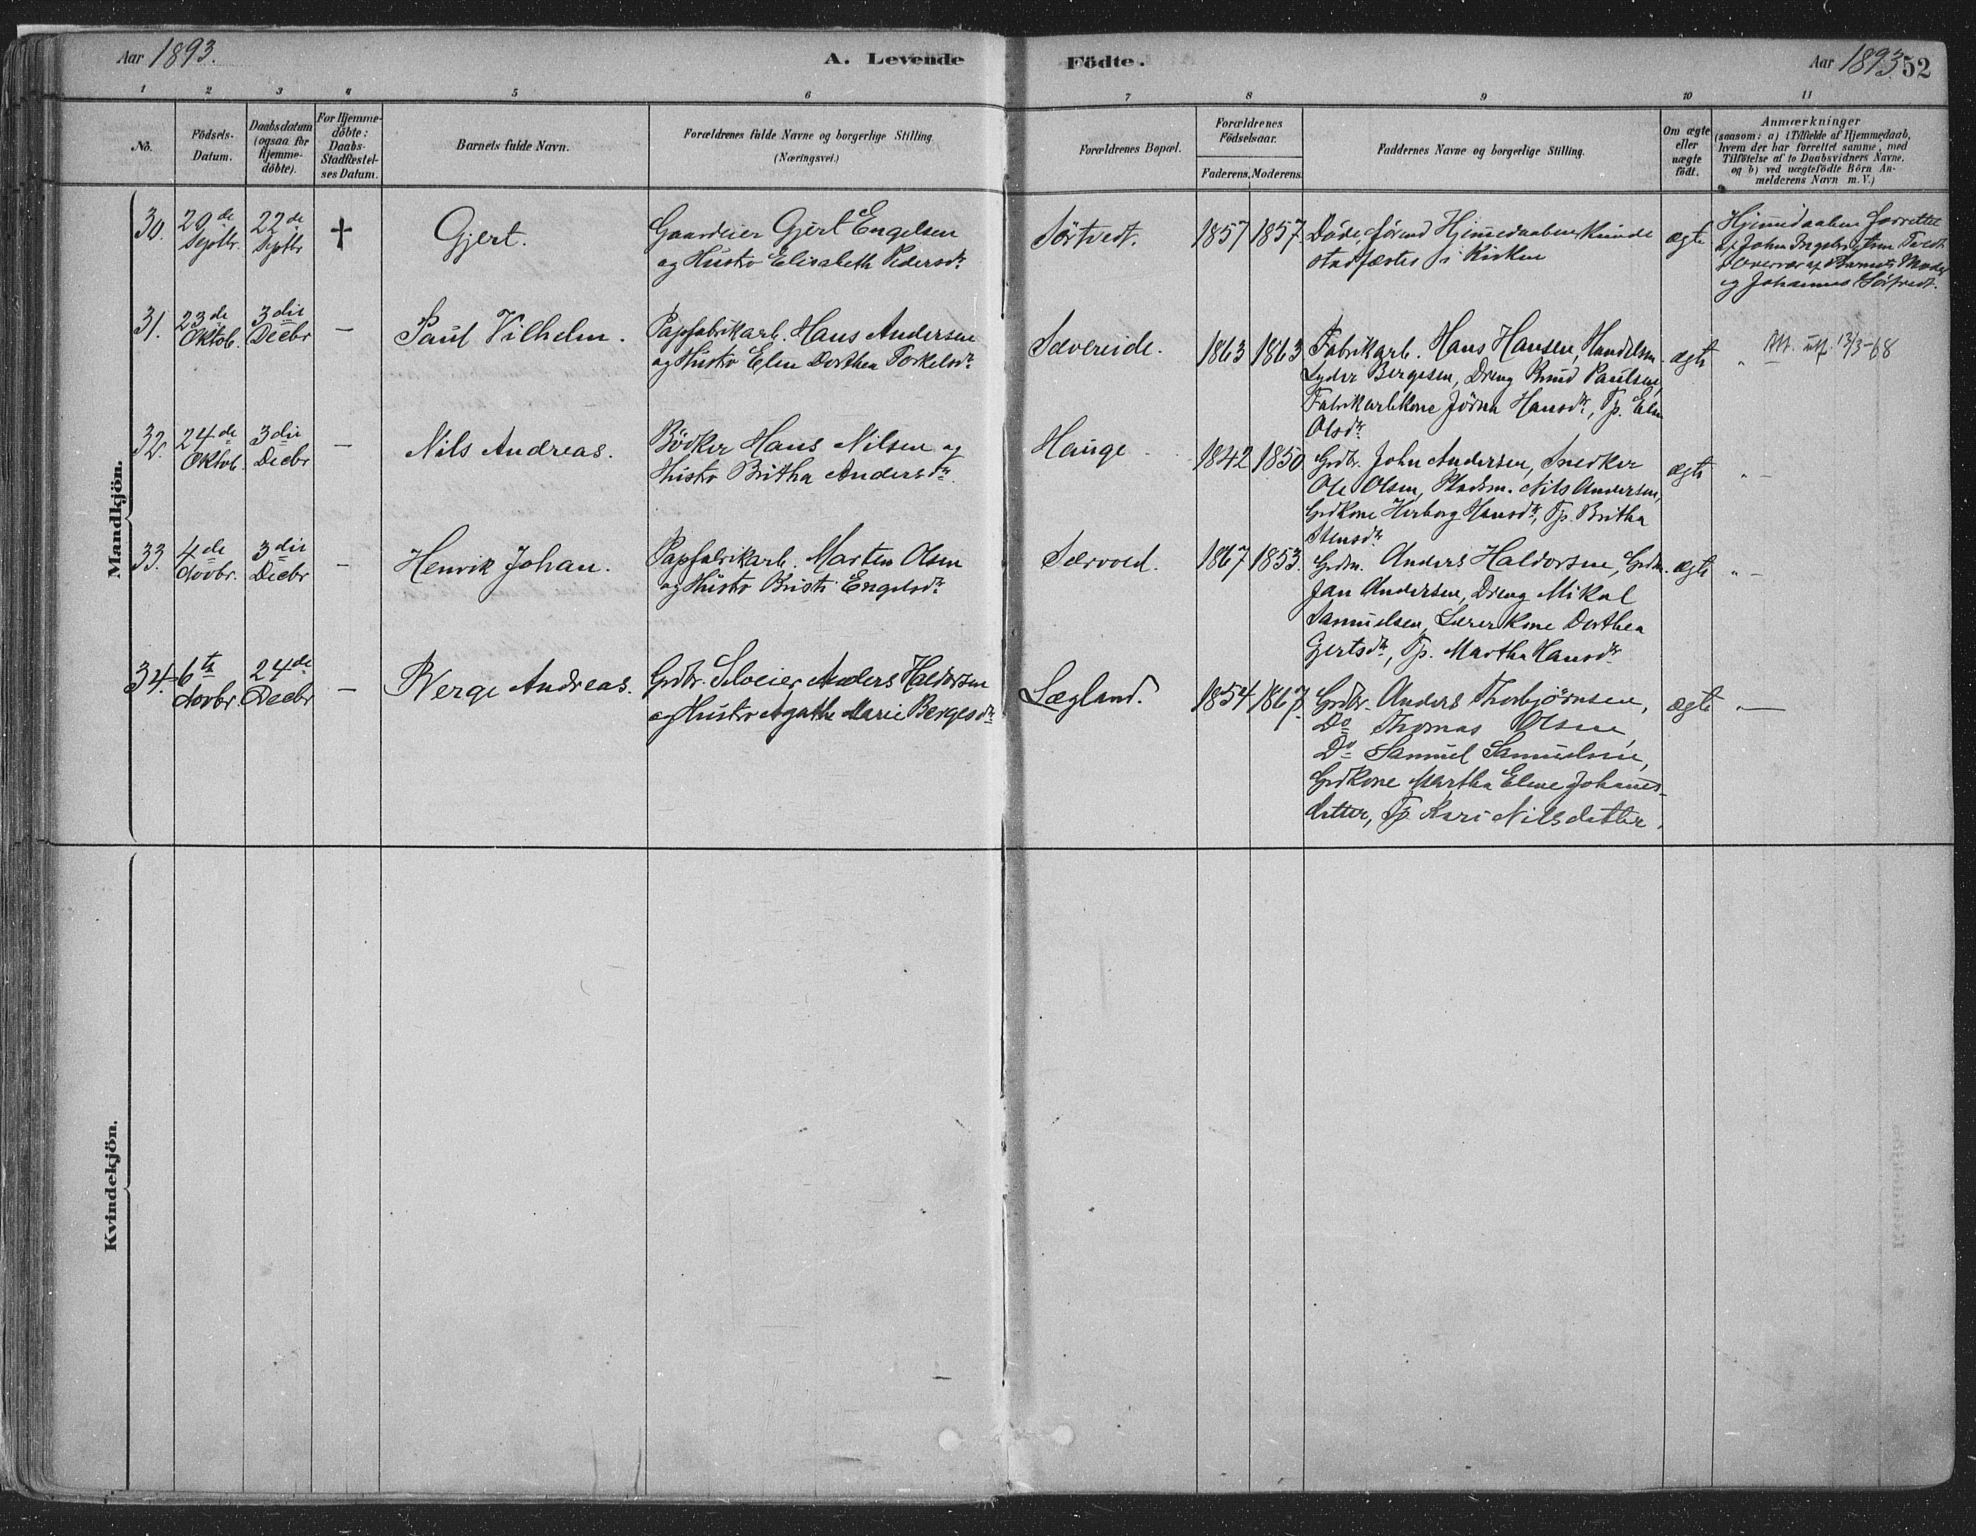 Aar 1893.
A. Levende
Födte.
Aar 1893.
52
1 2 3 4 5 6 7 8 9 10 11
No.
Födsels-
Datum.
Daabsdatum
(ogsaa for
Hjemme-
döbte).
For Hjemme-
döbte:
Daabs-
Stadfæstel-
ses Datum.
Barnets fulde Navn.
Forældrenes fulde Navne og borgerlige Stilling
(Næringsvei.)
Forældrenes Bopæl.
Forældrenes
Födselsaar.
Faderens. Moderens.
Faddernes Navne og borgerlige Stilling.
Om ægte
eller
uægte
födt.
Anmærkninger
(saasom: a) i Tilfælde af Hjemmedaab,
hvem der har forrettet samme, med
Tilföielse af to Daabsvidners Navne.
og b) ved uægtefödte Börn An-
melderens Navn m. V.)
Mandkjön.
30.
20de
Septbr.
22de
Septbr
†
Gjert.
Gaardeier Gjert Engelsen
og Hustro Elisabeth Pedersdr
Sörtvedt.
1857 1857
Döde, förend Hjemmedaaben kunde
stadfæstes i Kirken
ægte
Hjemmedaaben forrettet
af John
Overvær af Barnets Moder
og Johannes Sörtvedt.
31.
23de
Oktob.
3die
Decbr
—
Paul Vilhelm.
Papfabrikarb. Hans Andersen
og Hustro Elen Dorthea Torkelsdr
Sævereide.
1863 1863
Fabrikarb. Hans Hansen, Handelsm.
Lyder Bergesen, Dreng Knud Paulsen,
Fabrikarbkone Jörna Hansdr, Tp. Elen
Olsdr
ægte
"
Att. utf. 13/3-68
32.
24de
Oktob.
3die
Decbr
—
Nils Andreas.
Bödker Hans Nilsen og
Hustro Britha Andersdr
Hauge
1842 1850
Grdbr. John Andersen, Snedker
Ole Olsen, Pladsm. Nils Andersen,
Grdkone Herborg Hansdr, Tp. Britha
Stensdr
ægte
" —
33.
4de
Novbr.
3die
Decbr
—
Henrik Johan.
Papfabrikarb. Marten Olsen
og Hustro Kristi Engelsdr
Særvold.
1867 1853
Grdm. Anders Haldorsen, Grdm.
Jan Andersen, Dreng Mikal
Samuelsen, Lærerkone Dorthea
Gertsdr, Tp. Martha Hansdr
ægte
" —
34.
6te
Novbr.
24de
Decbr
—
Berge Andreas.
Grdbr. Selveier Anders Haldorsen
og Hustro Agathe Marie Bergesdr
Lægland.
1854 1867
Grdbr. Anders Thorbjörnsen,
Do Thomas Olsen,
Do Samuel Samuelsen,
Grdkone Martha Elene Johannes-
datter, Tp. Kari Nilsdatter.
ægte
" —
Kvindekjön.